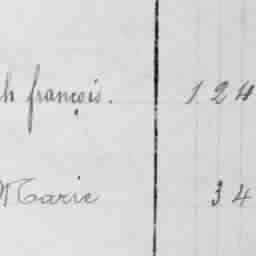 h françois. 124
Marie 34